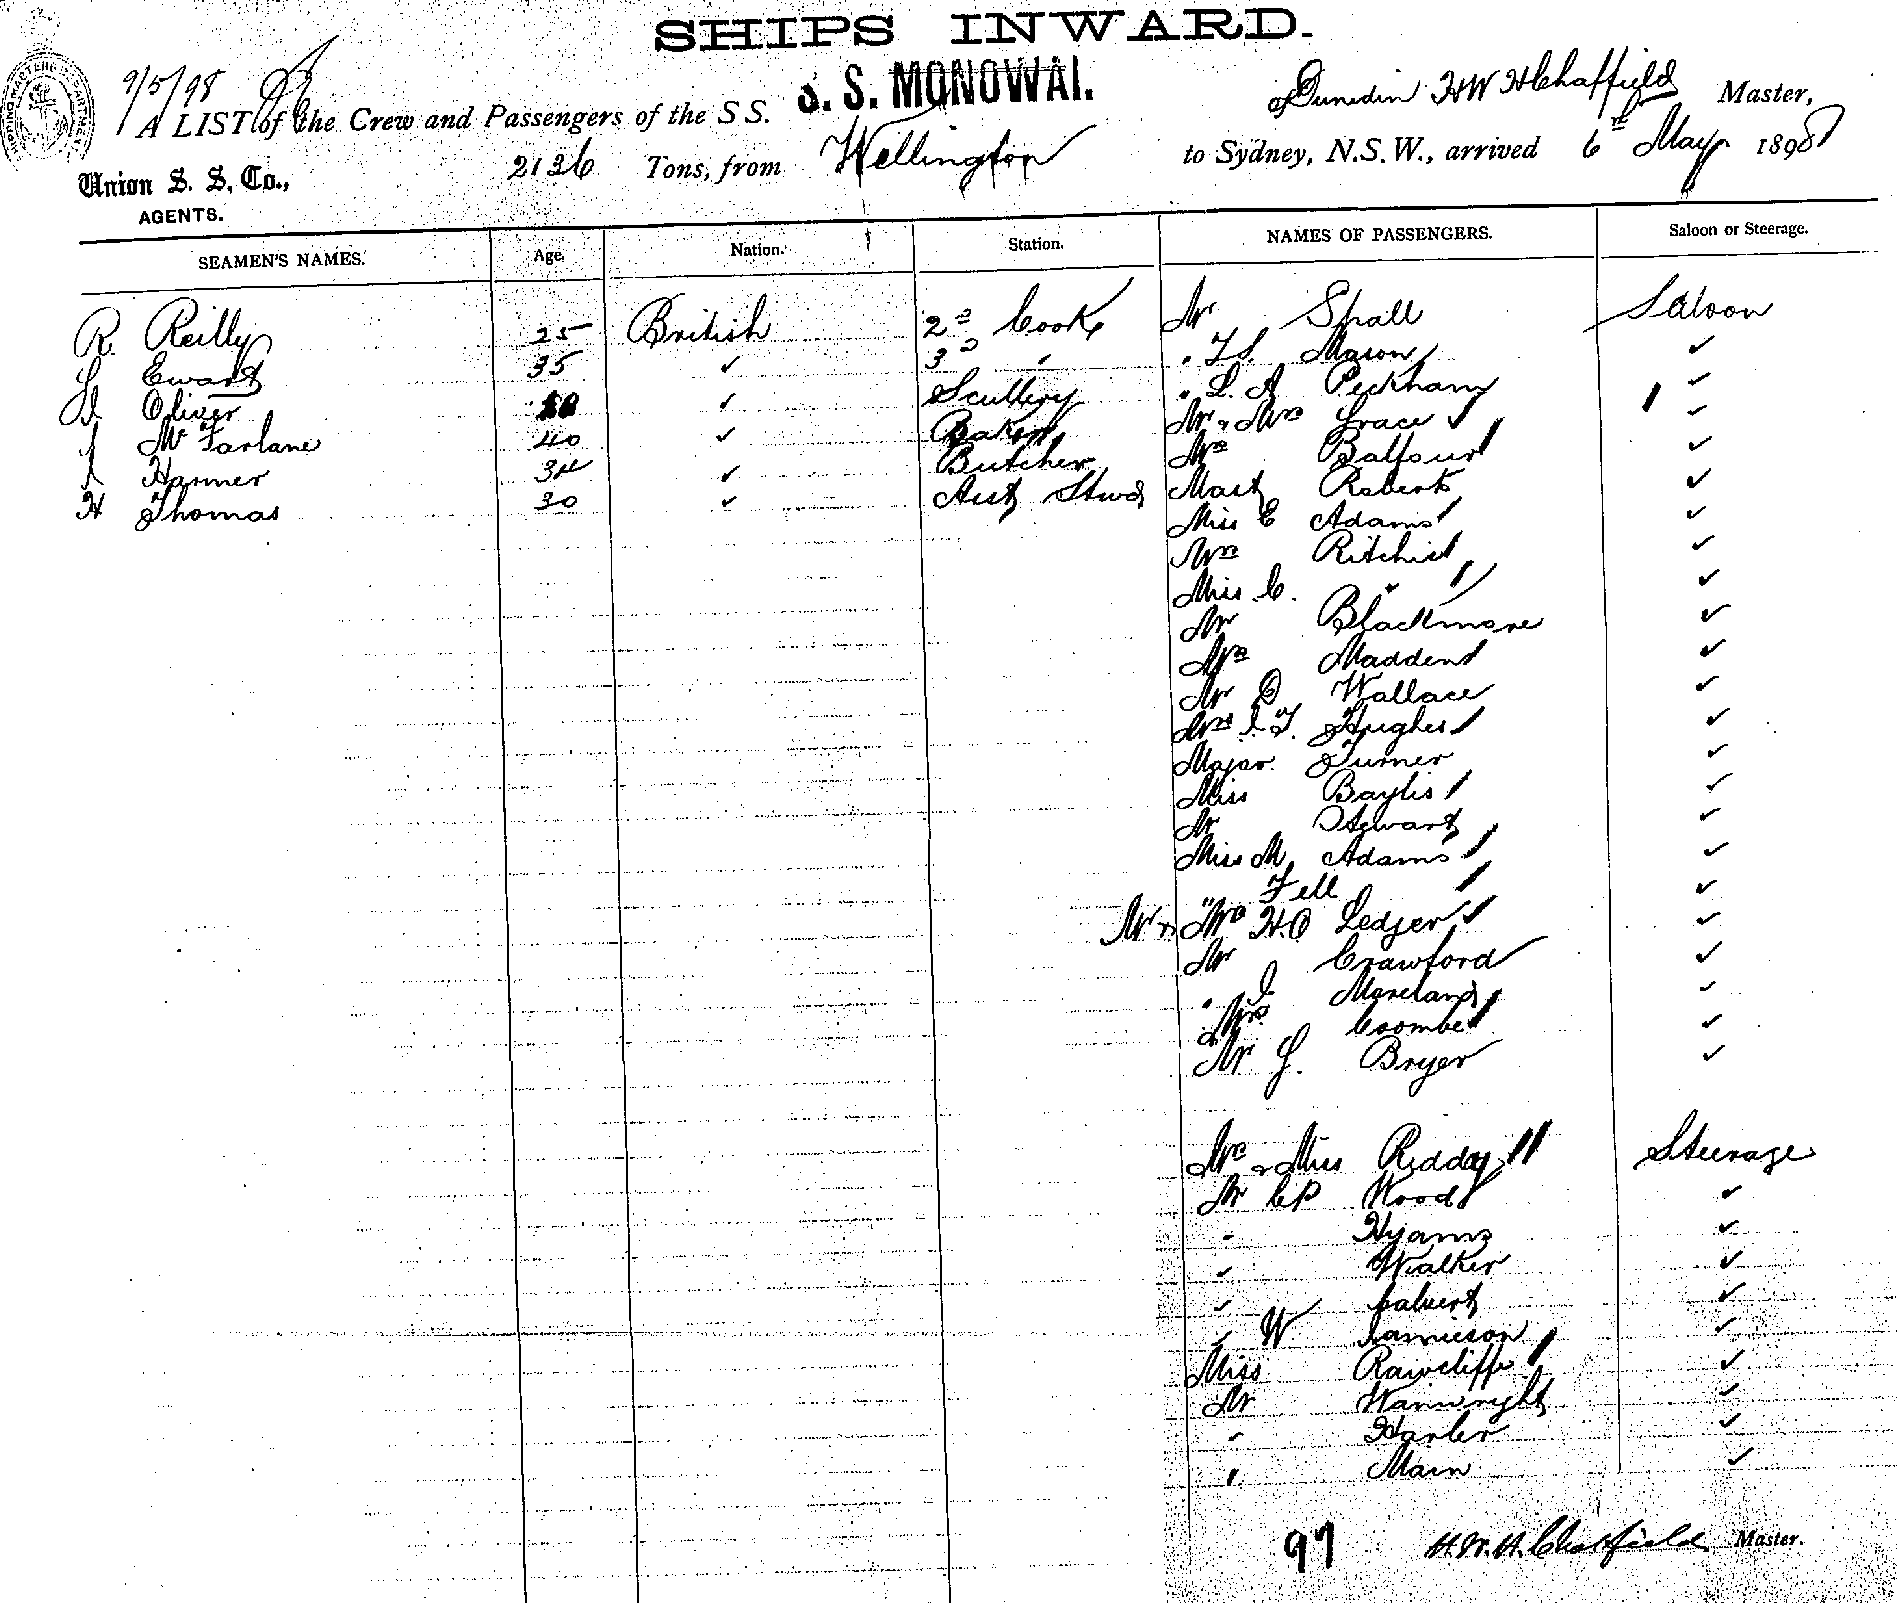 SHIPS INWARD.
9/5/98
S. S. MONOWAI.
of Dunedin HW H Chatfield Master,
A LIST of the Crew and Passengers of the S S.
2136 Tons, from Wellington to Sydney, N.S.W., arrived 6th May 1898
Union S. S. Co.,
AGENTS.
SEAMEN'S NAMES. Age. Nation. Station. NAMES OF PASSENGERS. Saloon or Steerage.
R. Reilly 25 British 2d Cook Mr Small Saloon
Ewart 35 ✓ 3d " " Mason ✓
Oliver ✓ Scullery " L. A Peckham ✓
Mc Farlane 40 ✓ Baker Mr & Mrs Grace ✓
Harmer 34 ✓ Butcher Mrs Balfour ✓
H Thomas 30 ✓ Asst Stwd Mast Roberts ✓
Miss E Adams ✓
Mrs Ritchie ✓
Miss C. " ✓
Mr Blackmore ✓
Mrs Madden ✓
Mr Wallace ✓
Mrs Hughes ✓
Major Turner ✓
Miss Baylis ✓
Mr Stewart ✓
Miss M. Adams ✓
" Fell ✓
Mr & Mrs Ledger ✓
Mr Crawford ✓
" Moreland ✓
Mrs Coombe ✓
Mr G. Bryer ✓
Mrs & Miss Reddy Steerage
Mr C P Wood ✓
" Hyams ✓
" Walker ✓
" Calvert ✓
" W Jamieson ✓
Miss Rawcliffe ✓
Mr Wainwright ✓
" Harler ✓
" Main ✓
97 H. W. H. Chatfield Master.